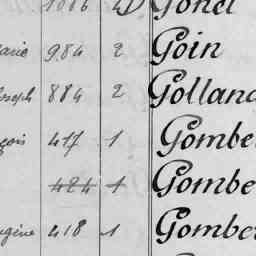 1086 4 Gonel
arie 984 2 Goin
Joseph 884 2 Golland
çois 417 1 Gombe
424 1 Gombe
ugène 418 1 Gomber